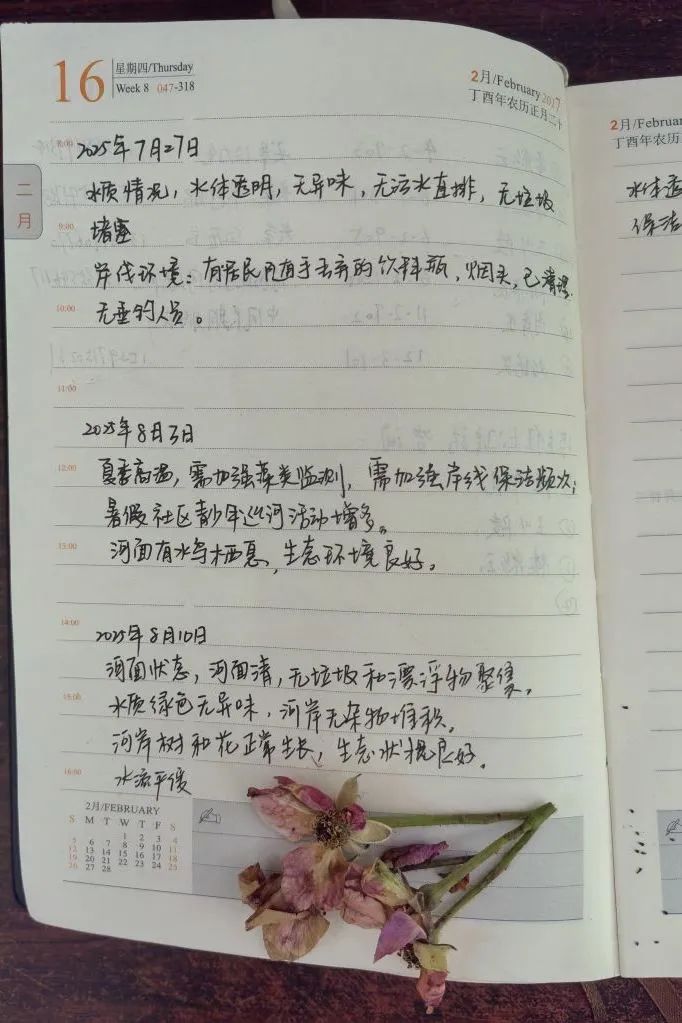 16 星期四/Thursday
Week 8 047-318
2月/February 2017
丁酉年农历正月二十
二月
8:00
2025年7月27日
水质情况，水体透明，无异味，无污水直排，无垃圾
9:00
堵塞
岸伐环境：有居民随手丢弃的饮料瓶，烟头，已清理
10:00
无垂钓人员。
11:00
2025年8月3日
12:00
夏季高温，需加强藻类监测，需加强岸线保洁频次；
暑假社区青少年巡河活动增多。
13:00
河面有水鸟栖息，生态环境良好。
14:00
2025年8月10日
河面状态，河面清，无垃圾和漂浮物聚集，
15:00
水质绿色无异味，河岸无杂物堆积。
河岸树和花正常生长，生态状况良好。
16:00
水流平缓
2月/FEBRUARY
S M T W T F S
1 2 3 4
5 6 7 8 9 10 11
12 13 14 15 16 17 18
19 20 21 22 23 24 25
26 27 28
2月/Februar
丁酉年农历
水体透
保洁